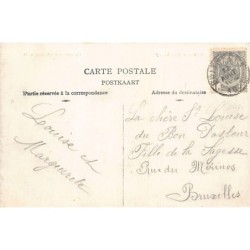 CARTE POSTALE
POSTKAART
Partie réservée à la correspondance
Adresse du destinataire
Louise et
Marguerite
La chère Sr Louise
du Bon Pasteur
Fille de la Sagesse
Rue des Minimes
Bruxelles